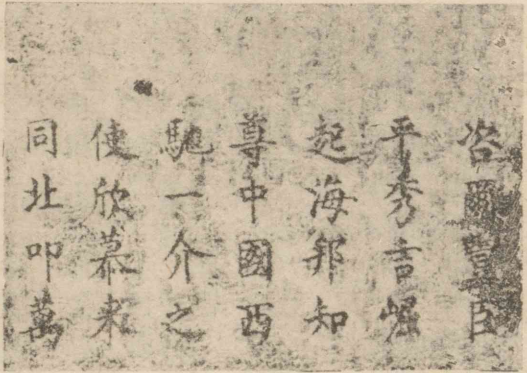 咨爾豐臣
平秀吉崛
起海邦知
尊中國西
馳一介之
使欣慕来
同北叩萬